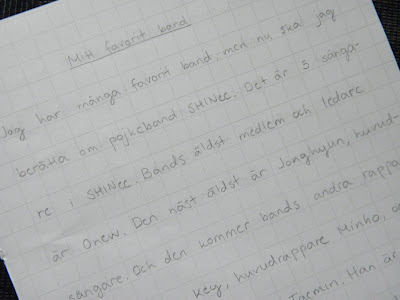 Mitt favorit band
Jag har många favorit band, men nu ska jag
berätta om pojkeband SHINee. Det är 5 sånga-
re i SHINee. Bands äldst medlem och ledare
är Onew. Den näst äldst är Jonghyun, huvud-
sångare. Och den kommer bands andra rappa
Key, huvudrappare Minho, o
Taemin. Han är